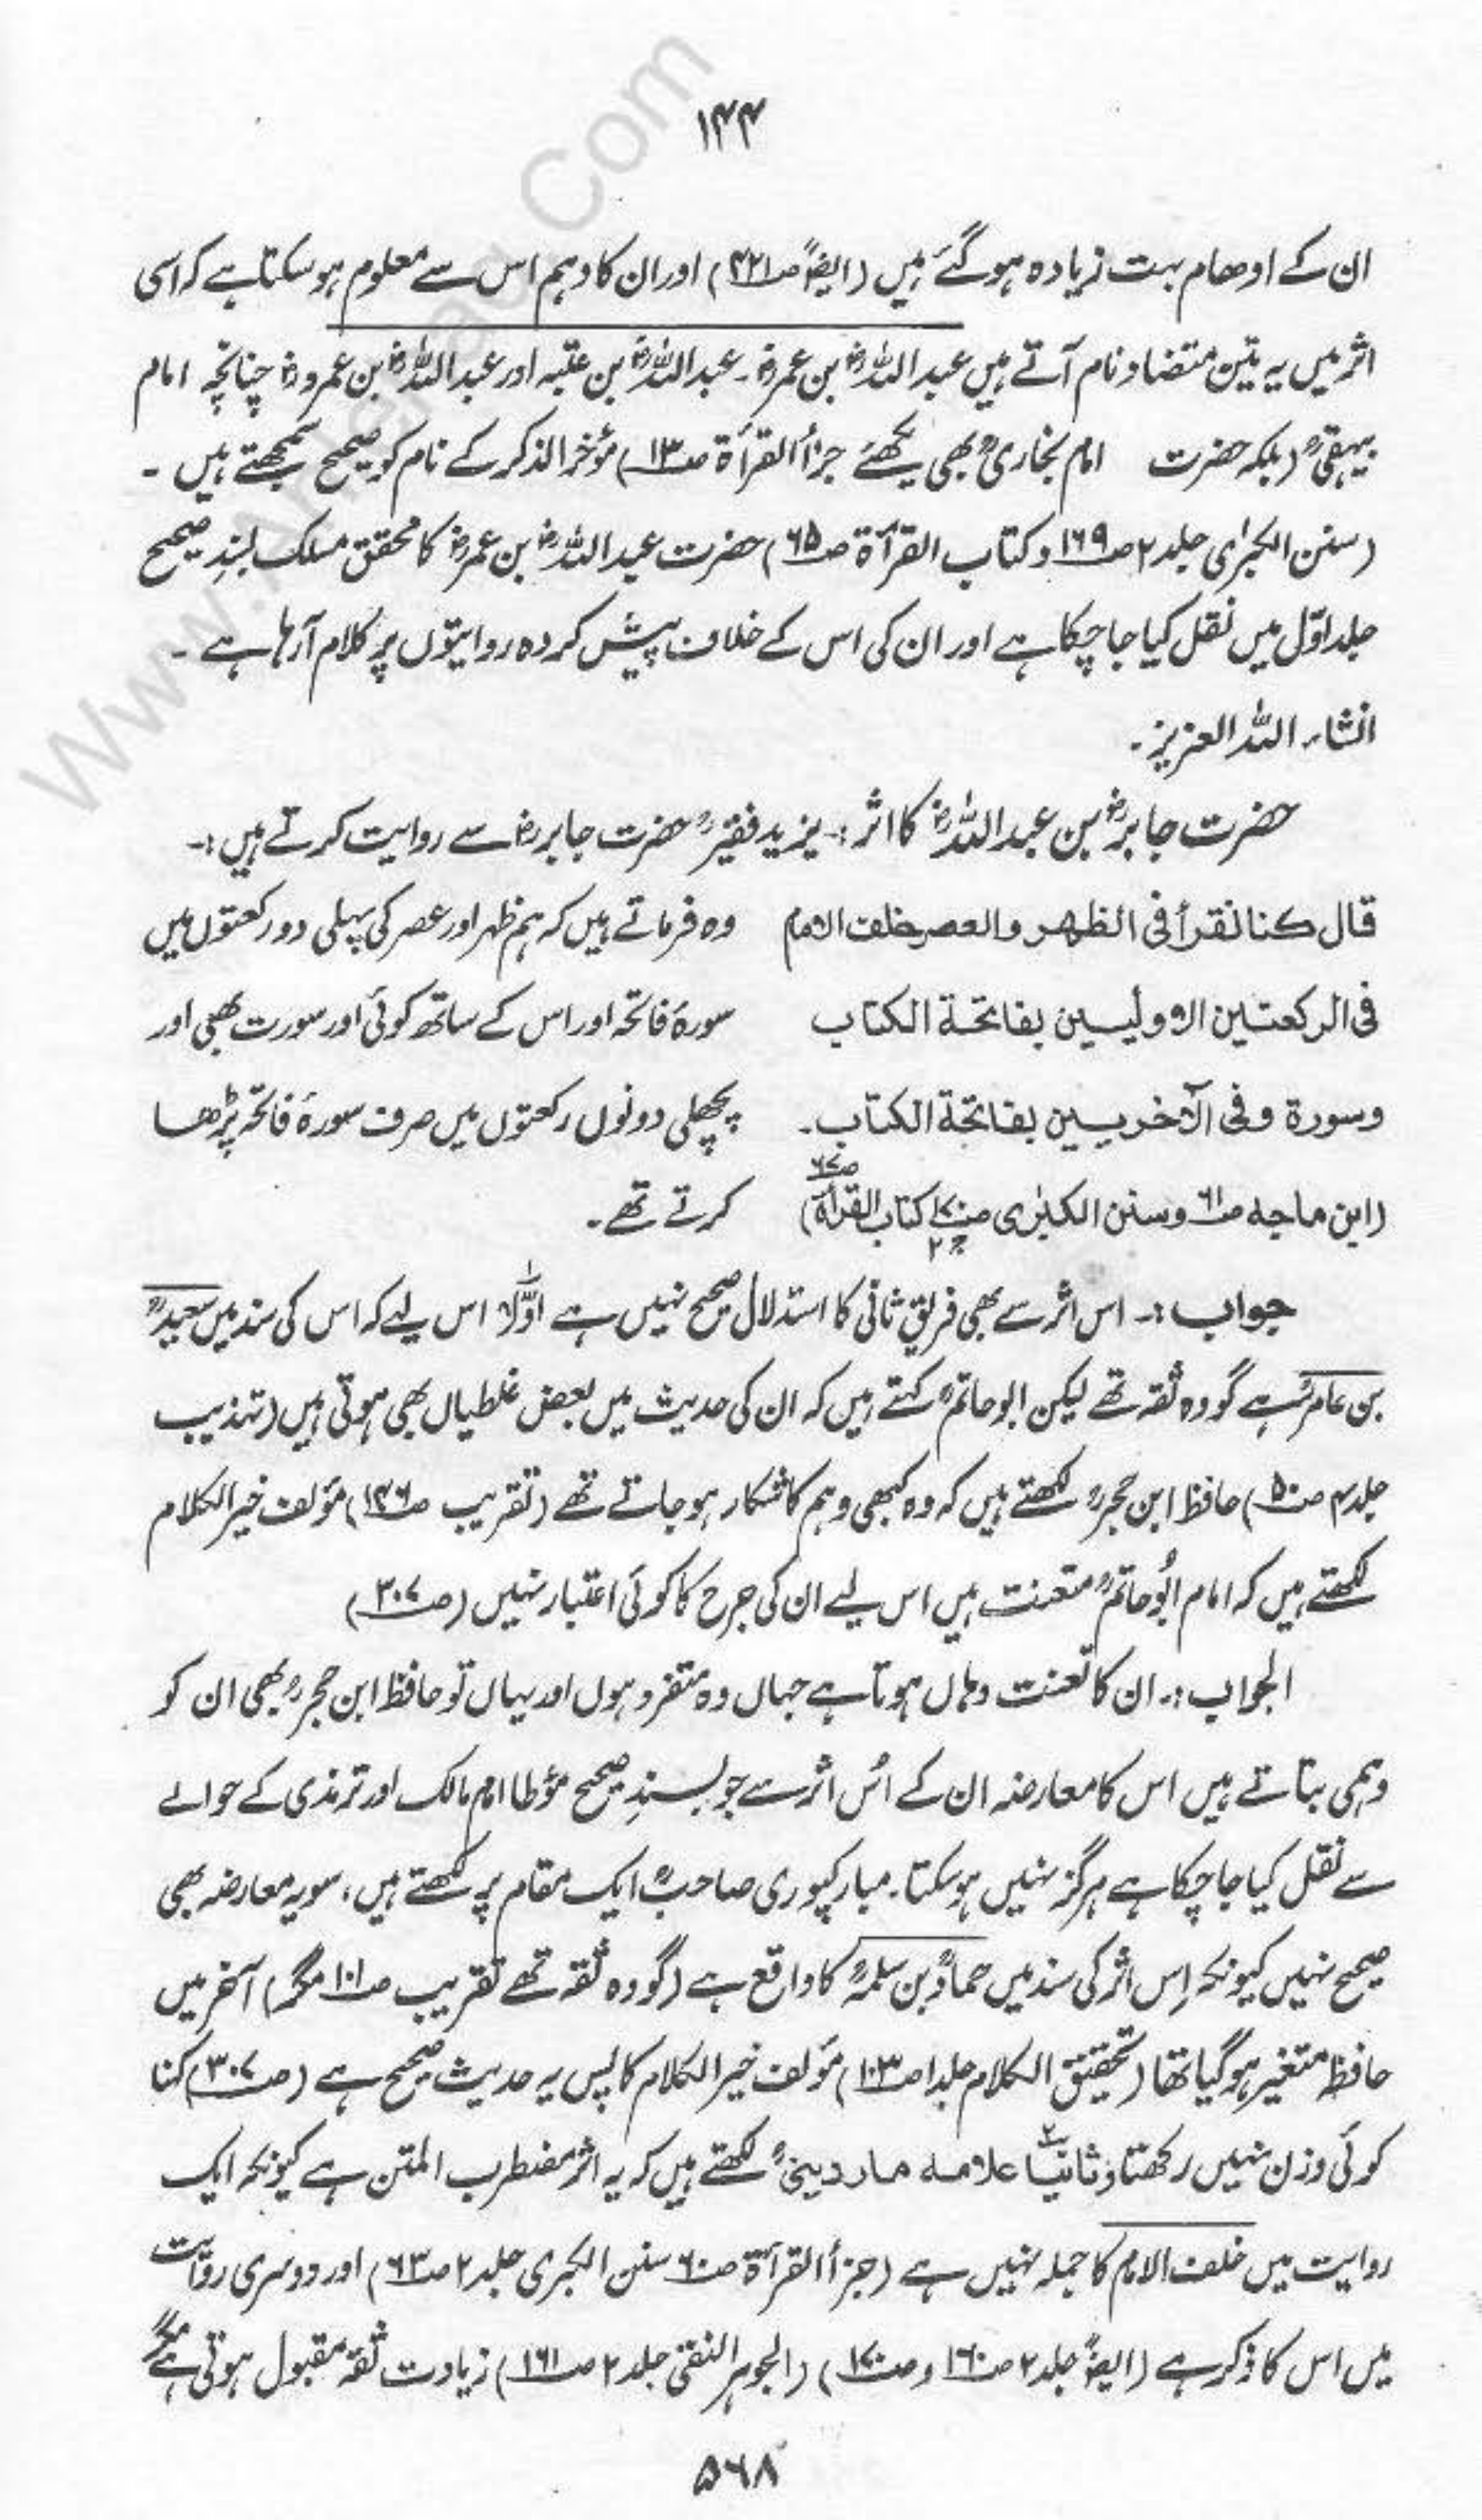 ۱۴۴
ان کے اوھام بہت زیادہ ہو گئے ہیں (ایضاً صـ۴۲۱) اور ان کا وہم اس سے معلوم ہو سکتا ہے کہ اسی
اثر میں یہ تین متضاد نام آتے ہیں عبداللہؓ بن عمرؓ۔ عبداللہؓ بن عتبہ اور عبداللہؓ بن عمروؓ چنانچہ امام
بیہقیؒ (بلکہ حضرت امام بخاریؒ بھی دیکھئے جزأ القرأۃ صـ۱۳) مؤخر الذکر کے نام کو صحیح سمجھتے ہیں ۔
(سنن الکبرٰی جلد ۲ صـ۱۶۹ و کتاب القرأۃ صـ۶۵) حضرت عبداللہؓ بن عمرؓ کا محقق مسلک بسندِ صحیح
جلد اوّل میں نقل کیا جا چکا ہے اور ان کی اس کے خلاف پیش کردہ روایتوں پر کلام آرہا ہے ۔
انشاء اللہ العزیز ۔
حضرت جابرؓ بن عبداللہؓ کا اثر :۔ یزید فقیرؒ حضرت جابرؓ سے روایت کرتے ہیں :۔
قال کنا نقرأ فی الظھر والعصر خلف الامام وہ فرماتے ہیں کہ ہم ظہر اور عصر کی پہلی دو رکعتوں میں
فی الرکعتین الاولیین بفاتحة الکتاب سورۂ فاتحہ اور اس کے ساتھ کوئی اور سورت بھی اور
وسورة وفی الآخریین بفاتحة الکتاب ۔ پچھلی دونوں رکعتوں میں صرف سورۂ فاتحہ پڑھا
(ابن ماجہ صـ۶۱ وسنن الکبرٰی صـ۱۷۰ ج۲ کتاب القرأۃ صـ۶۷) کرتے تھے ۔
جواب :۔ اس اثر سے بھی فریق ثانی کا استدلال صحیح نہیں ہے اوّلاً اس لیے کہ اس کی سند میں سعیدؒ
بن عامرؒ ہے گو وہ ثقہ تھے لیکن ابو حاتمؒ کہتے ہیں کہ ان کی حدیث میں بعض غلطیاں بھی ہوتی ہیں (تہذیب
جلد ۴ صـ۵۰) حافظ ابن حجرؒ لکھتے ہیں کہ وہ کبھی وہم کا شکار ہو جاتے تھے (تقریب صـ۱۴۶) مؤلف خیر الکلام
لکھتے ہیں کہ امام ابُو حاتمؒ متعنت ہیں اس لیے ان کی جرح کا کوئی اعتبار نہیں (صـ۳۰۷)
الجواب :۔ ان کا تعنت وہاں ہوتا ہے جہاں وہ متفرد ہوں اور یہاں تو حافظ ابن حجرؒ بھی ان کو
وہمی بتاتے ہیں اس کا معارضہ ان کے اُس اثر سے جو بسندِ صحیح مؤطا امام مالک اور ترمذی کے حوالے
سے نقل کیا جا چکا ہے ہرگز نہیں ہو سکتا۔ مبارکپوری صاحبؒ ایک مقام پر لکھتے ہیں، سو یہ معارضہ بھی
صحیح نہیں کیونکہ اِس اثر کی سند میں حمادؒ بن سلمہؒ کا واقع ہے (گو وہ ثقہ تھے تقریب صـ۱۰۱ مگر) آخر میں
حافظہ متغیر ہو گیا تھا (تحقیق الکلام جلد ۱ صـ۱۰۳) مؤلف خیر الکلام کا پس یہ حدیث صحیح ہے (صـ۳۰۷) کہنا
کوئی وزن نہیں رکھتا و ثانیاً علامہ ماردینیؒ لکھتے ہیں کہ یہ اثر مضطرب المتن ہے کیونکہ ایک
روایت میں خلف الامام کا جملہ نہیں ہے (جزأ القرأۃ صـ۶۰ سنن الکبری جلد ۲ صـ۶۳) اور دوسری روایت
میں اس کا ذکر ہے (ایضاً جلد ۲ صـ۱۶۰ و صـ۱۷۰) (الجوہر النقی جلد ۲ صـ۱۶۱) زیادت ثقہ مقبول ہوتی ہے مگر
۵۶۸